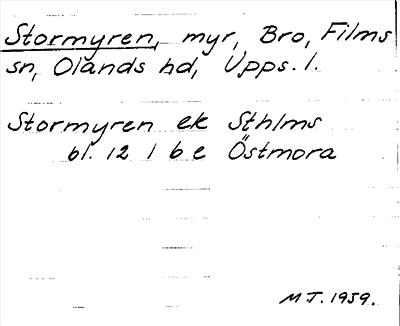 Stormyren, myr, Bro, Films
sn, Olands hd, Upps. l.
Stormyren ek Sthlms
bl. 12 1 b e Östmora
MJ. 1959.